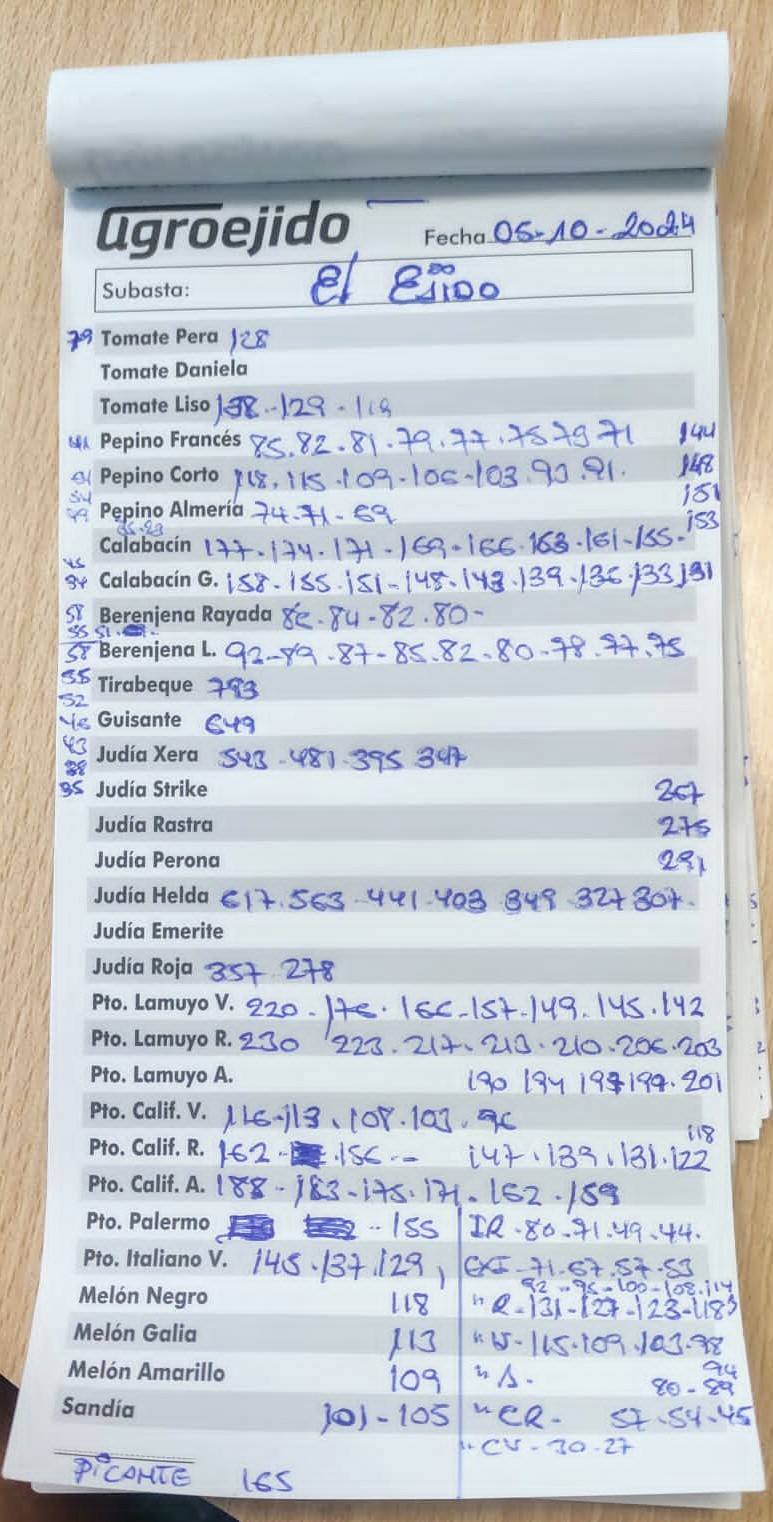 agroejido Fecha 05-10-2024
Subasta: El Ejido
79 Tomate Pera 128
Tomate Daniela
Tomate Liso 138.-129-119
Pepino Francés 85.82.81.79.77.75 73 71 144
Pepino Corto 118.115.109-106-103.93.91. 148
151
Pepino Almería 74-71-69
153
Calabacín 177.174.171-169-166.163.161-155.
45
94 Calabacín G. 158-155.151-148-143.139.136.133 131
58 Berenjena Rayada 86-84-82.80-
55 51
58 Berenjena L. 92-89.87-85.82-80-78.77.75
55 Tirabeque 793
52
46 Guisante 649
43 Judía Xera 543-481-395 347
38
35 Judía Strike 267
Judía Rastra 275
Judía Perona 291
Judía Helda 617.563-441-403 349 327 307-
Judía Emerite
Judía Roja 357 278
Pto. Lamuyo V. 220-176.166-157-149.145.142
Pto. Lamuyo R. 230 223.217.213.210.206.203
Pto. Lamuyo A. 190 194 197 199.201
Pto. Calif. V. 116-113.108.103.96
118
Pto. Calif. R. 162-.156.- 147.139.131.122
Pto. Calif. A. 188-183-175.171.162.159
Pto. Palermo -155 IR-80-71.49.44.
Pto. Italiano V. 145.137.129, EXI-71-67.57-53
92-95-100-108.114
Melón Negro 118 "R-131-127-123-118
Melón Galia 113 "V-115.109.103.98
94
Melón Amarillo 109 "A. 80-89
Sandía 101-105 "CR- 57-54-45
"CV-30-27
PICANTE 165